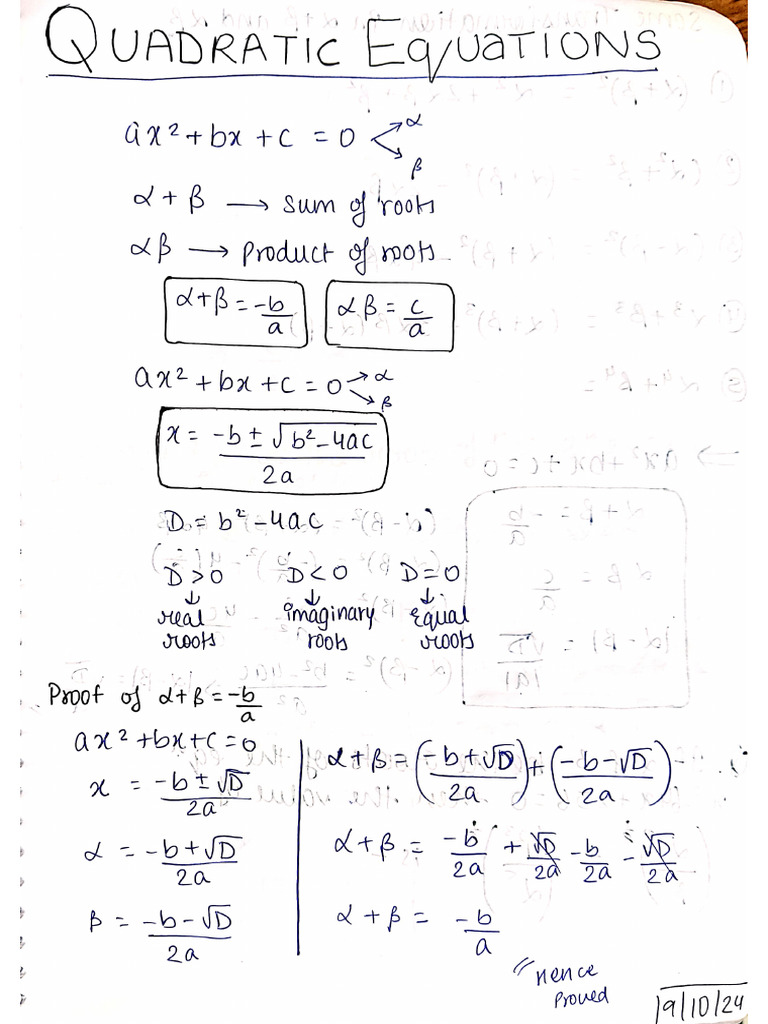 QUADRATIC EQUATIONS
ax² + bx + c = 0 < α β
α + β → sum of roots
αβ → product of roots
α+β = -b/a αβ = c/a
ax² + bx + c = 0 → α → β
x = -b ± √b² - 4ac / 2a
D = b² - 4ac
D > 0 D < 0 D = 0
↓ ↓ ↓
real imaginary Equal
roots roots roots
Proof of α+β = -b/a
ax² + bx + c = 0
x = -b ± √D / 2a
α = -b + √D / 2a
β = -b - √D / 2a
α + β = (-b + √D / 2a) + (-b - √D / 2a)
α + β = -b/2a + √D/2a - b/2a - √D/2a
α + β = -b/a
Hence
Proved
19/10/24